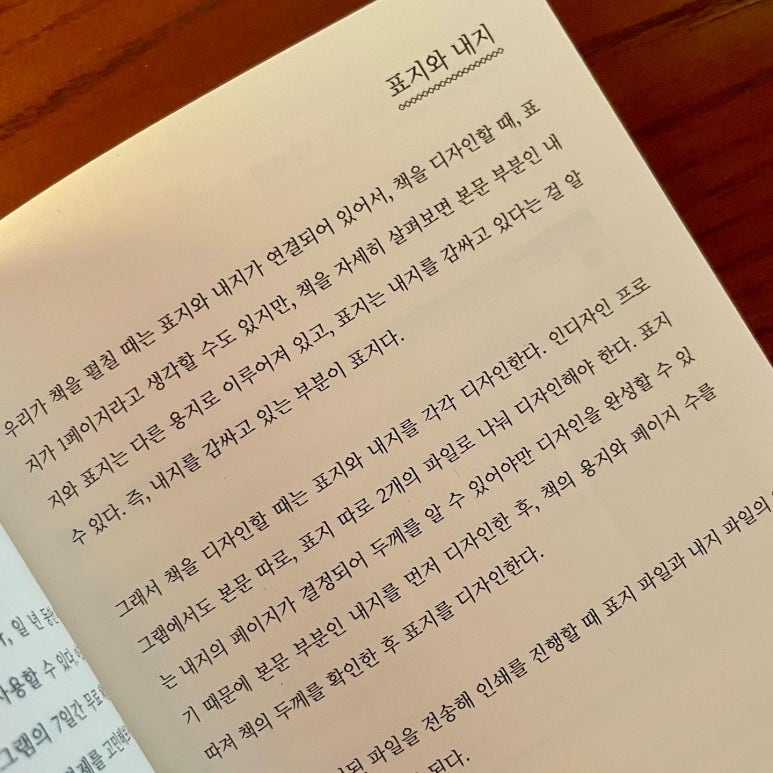 표지와 내지
우리가 책을 펼칠 때는 표지와 내지가 연결되어 있어서, 책을 디자인할 때, 표
지가 1페이지라고 생각할 수도 있지만, 책을 자세히 살펴보면 본문 부분인 내
지와 표지는 다른 용지로 이루어져 있고, 표지는 내지를 감싸고 있다는 걸 알
수 있다. 즉, 내지를 감싸고 있는 부분이 표지다.
그래서 책을 디자인할 때는 표지와 내지를 각각 디자인한다. 인디자인 프로
그램에서도 본문 따로, 표지 따로 2개의 파일로 나눠 디자인해야 한다. 표지
는 내지의 페이지가 결정되어 두께를 알 수 있어야만 디자인을 완성할 수 있
기 때문에 본문 부분인 내지를 먼저 디자인한 후, 책의 용지와 페이지 수를
따져 책의 두께를 확인한 후 표지를 디자인한다.
파일을 전송해 인쇄를 진행할 때 표지 파일과 내지 파일의
된다.
일 년
사용할 수 있다
그램의 7일간 무료